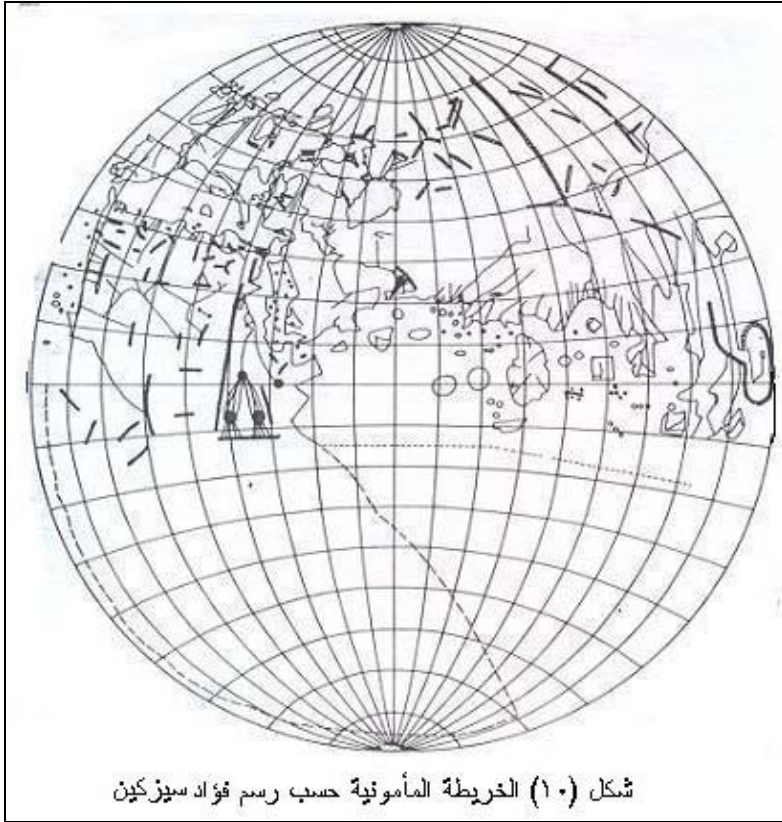 شكل (١٠) الخريطة المأمونية حسب رسم فؤاد سيزكين